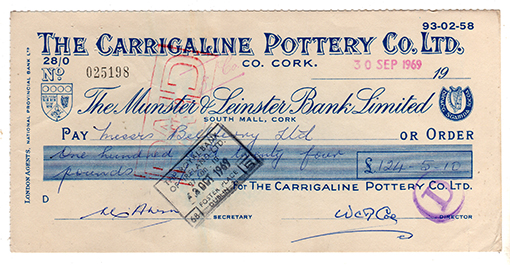 93-02-58
THE CARRIGALINE POTTERY CO. LTD.
CO. CORK.
28/0
No 025198
30 SEP 1969 19
The Munster & Leinster Bank Limited
SOUTH MALL, CORK
LONDON AGENTS. NATIONAL PROVINCIAL BANK LTD
PAY Messrs Ltd OR ORDER
One hundred four
pounds £124-5-10
for THE CARRIGALINE POTTERY CO. LTD.
D
SECRETARY DIRECTOR
OCT 1969
FOSTER PLACE
DUBLIN